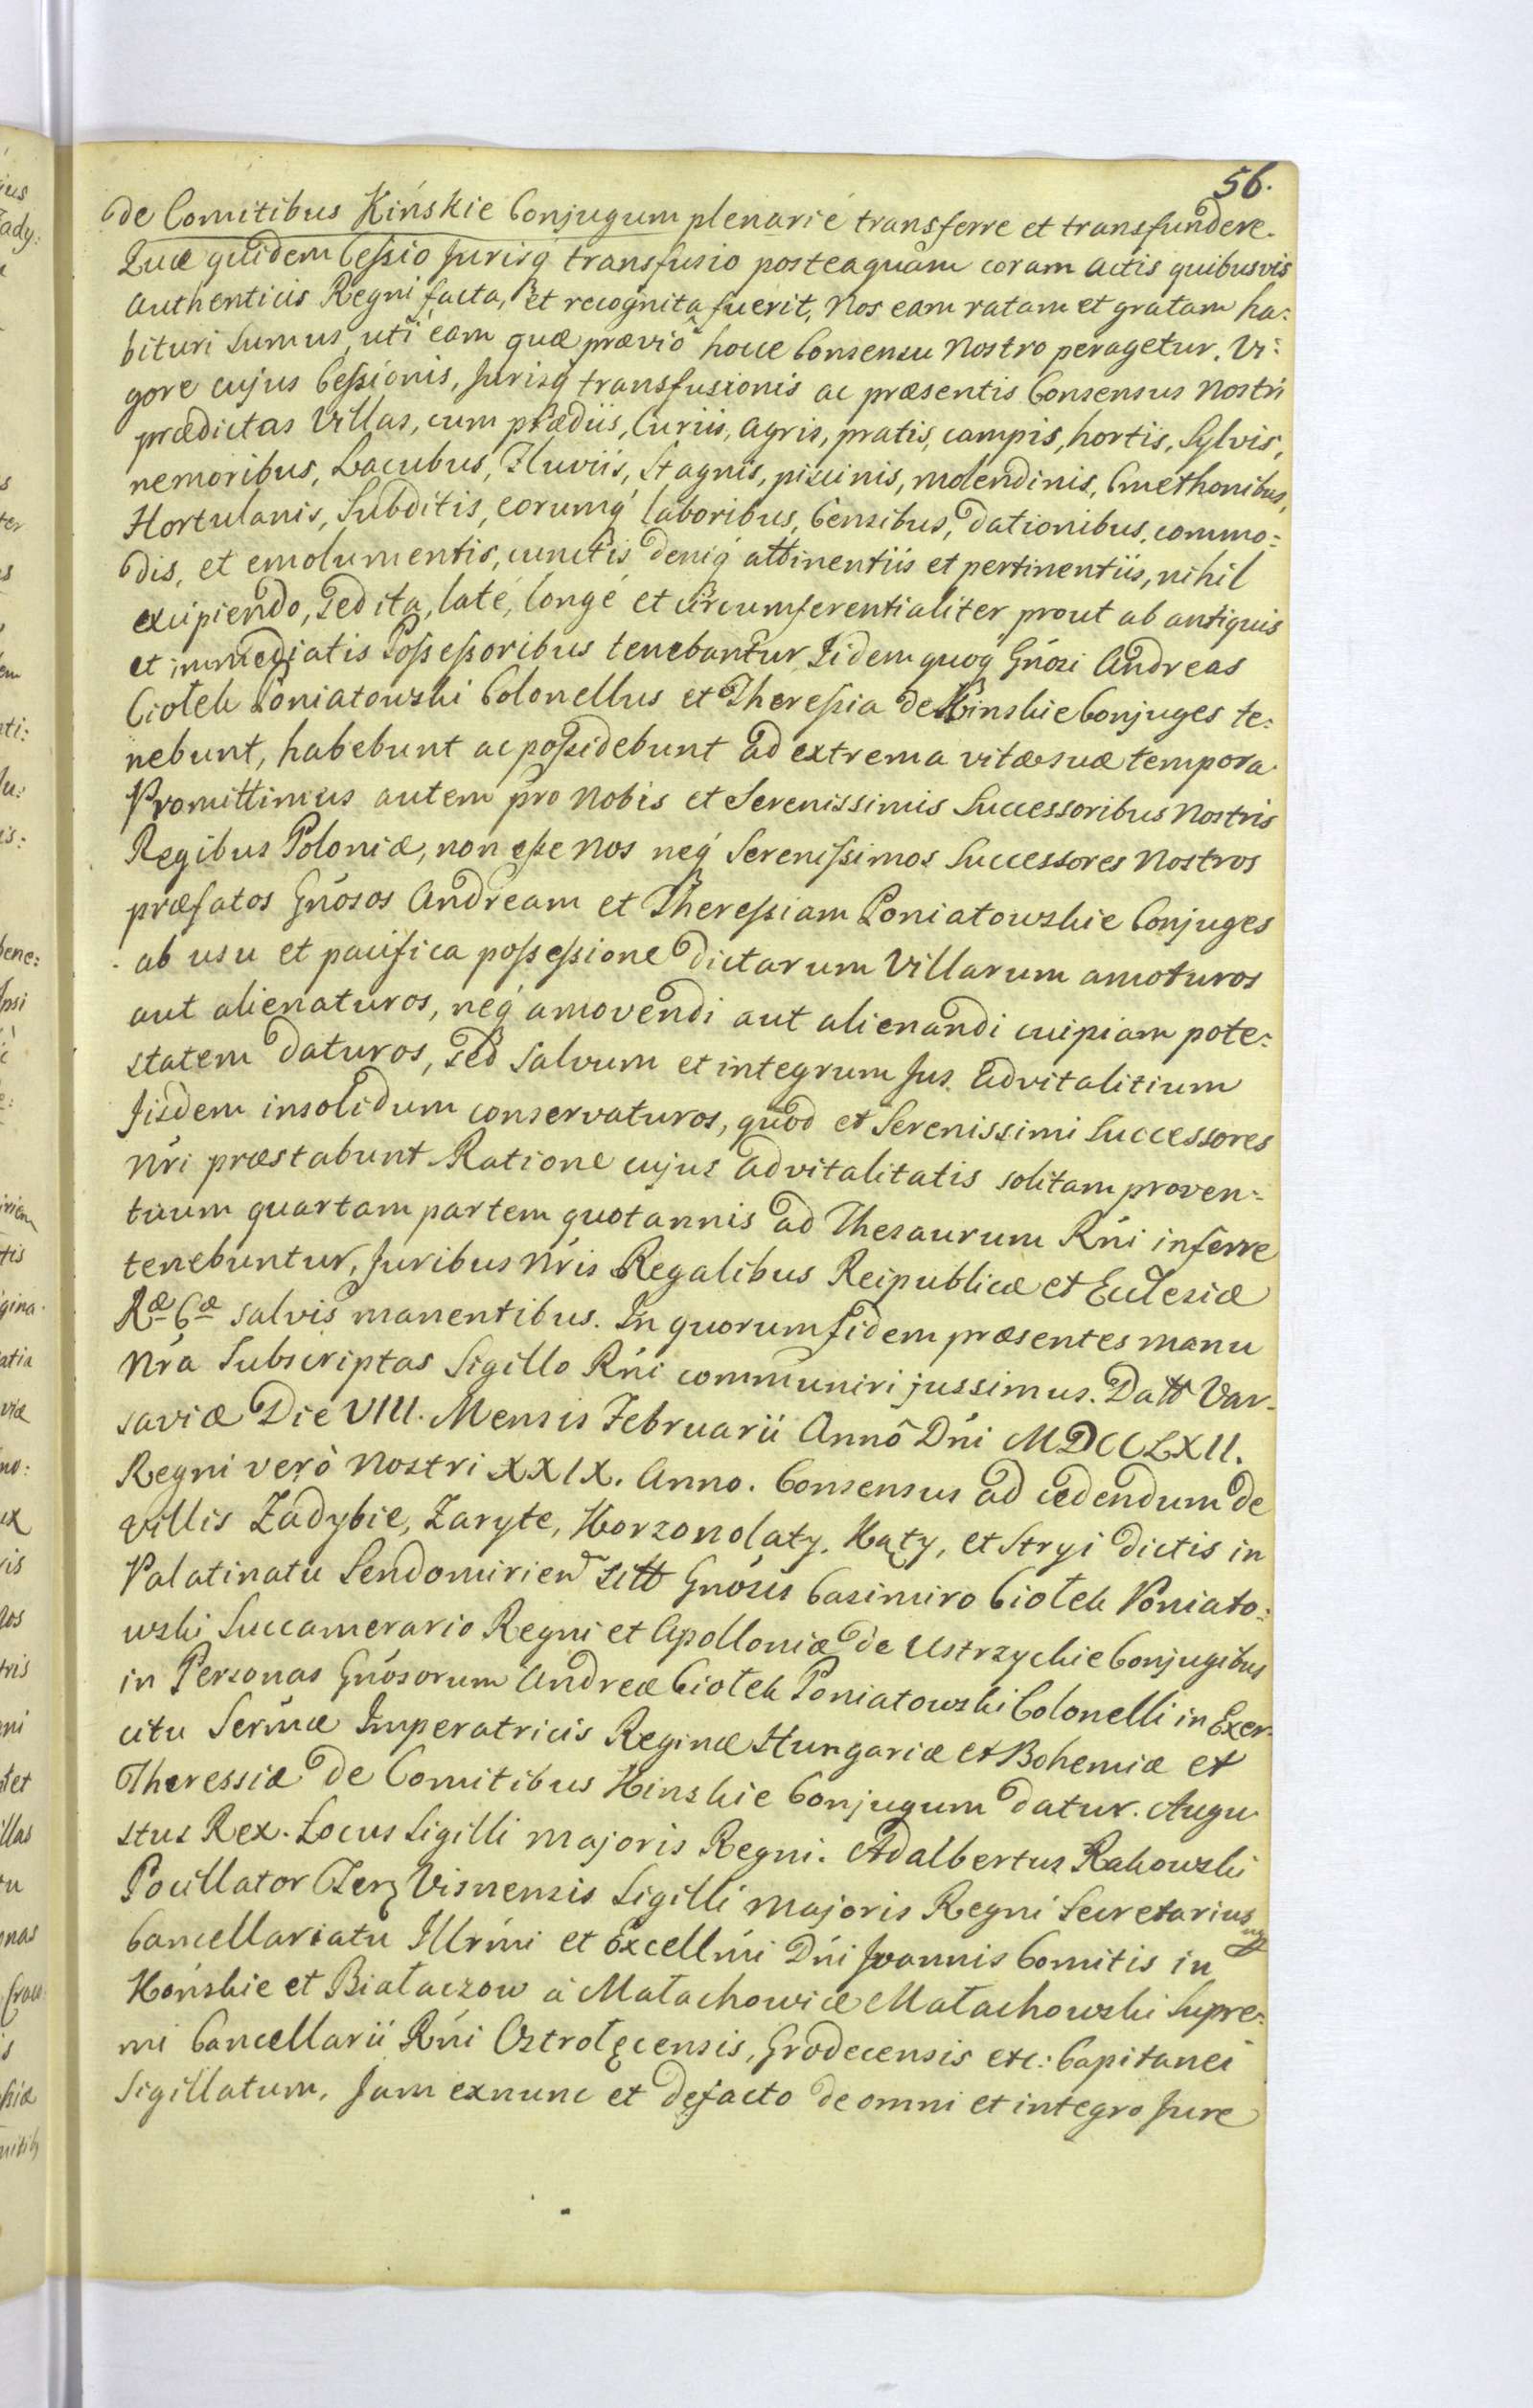 56.
de Comitibus Kińskie Conjugum plenarié transferre et transfundere.
Quæ quidem Cessio Jurisq́ transfusio posteaquàm coram actis quibusvis
authenticis Regni facta, et recognita fuerit, Nos eam ratam et gratam ha:
bituri sumus, uti eam quæ præviô hocce Consensu Nostro peragetur. Vi:
gore cujus Cessionis, Jurisq́ transfusionis ac præsentis Consensus Nostri
prædictas Villas, cum prædiis, Curiis, agris, pratis, campis, hortis, Sylvis,
nemoribus, Lacubus, Fluviis, Stagnis, piscinis, molendinis, Cmethonibus,
Hortulanis, Subditis, eorumq́ laboribus, Censibus, dationibus, commo:
dis, et emolumentis, cunctis deniq́ attinentiis et pertinentiis, nihil
excipiendo, sed ita, laté, longé et circumferentialiter prout ab antiquis
et immediatis Possessoribus tenebantur Iidem quoq́ Gnósi Andreas
Ciołek Poniatowski Colonellus et Theressia de Kinskie Conjuges te:
nebunt, habebunt ac possidebunt ad extrema vitæ suæ tempora
Promittimus autem pro Nobis et Serenissimis Successoribus Nostris
Regibus Poloniæ, non esse Nos neq́ Serenissimos Successores Nostros
præfatos Gnósos Andream et Theressiam Poniatowskie Conjuges
ab usu et pacifica possessione dictarum Villarum amoturos
aut alienaturos, neq́ amovendi aut alienandi cuipiam pote:
statem daturos, sed salvum et integrum Jus advitalitium
Iisdem insolidum conservaturos, quod et Serenissimi Successores
Nŕi præstabunt Ratione cujus advitalitatis solitam proven:
tuum quartam partem quotannis ad Thesaurum Rńi inferre
tenebuntur, Juribus Nŕis Regalibus Reipublicæ et Ecclesiæ
Ræ Cæ salvis manentibus. In quorum fidem præsentes manu
Nŕa Subscriptas Sigillo Rńi communiri jussimus. Datt Var-
saviæ Die VIII. Mensis Februarii Annô Dńi MDCCLXII.
Regni verò Nostri XXIX. Anno. Consensus ad cedendum de
Villis Zadybie, Zaryte, Korzonołaty, Kąty, et Stryi dictis in
Palatinatu Sendomirien sitt Gnósis Casimiro Ciołek Poniato:
wski Succamerario Regni et Apolloniæ de Ustrzyckie Conjugibus
in Personas Gnósorum Andreæ Ciołek Poniatowski Colonelli in Exer-
citu Serm̃æ Imperatricis Reginæ Hungariæ et Bohemiæ et
Theressiæ de Comitibus Kinskie Conjugum datur. Augu
stus Rex. Locus Sigilli Majoris Regni. Adalbertus Rakowski
Pocillator Terŗ Visnensis Sigilli Majoris Regni Secretarius
Cancellariatu Illrḿi et Excellḿi Dńi Joannis Comitis in
Końskie et Białaczow á Małachowice Małachowski Supre:
mi Cancellarii Rńi Ostrołęcensis, Grodecensis etc: Capitanei
Sigillatum. Jam exnunc et defacto de omni et integro Jure